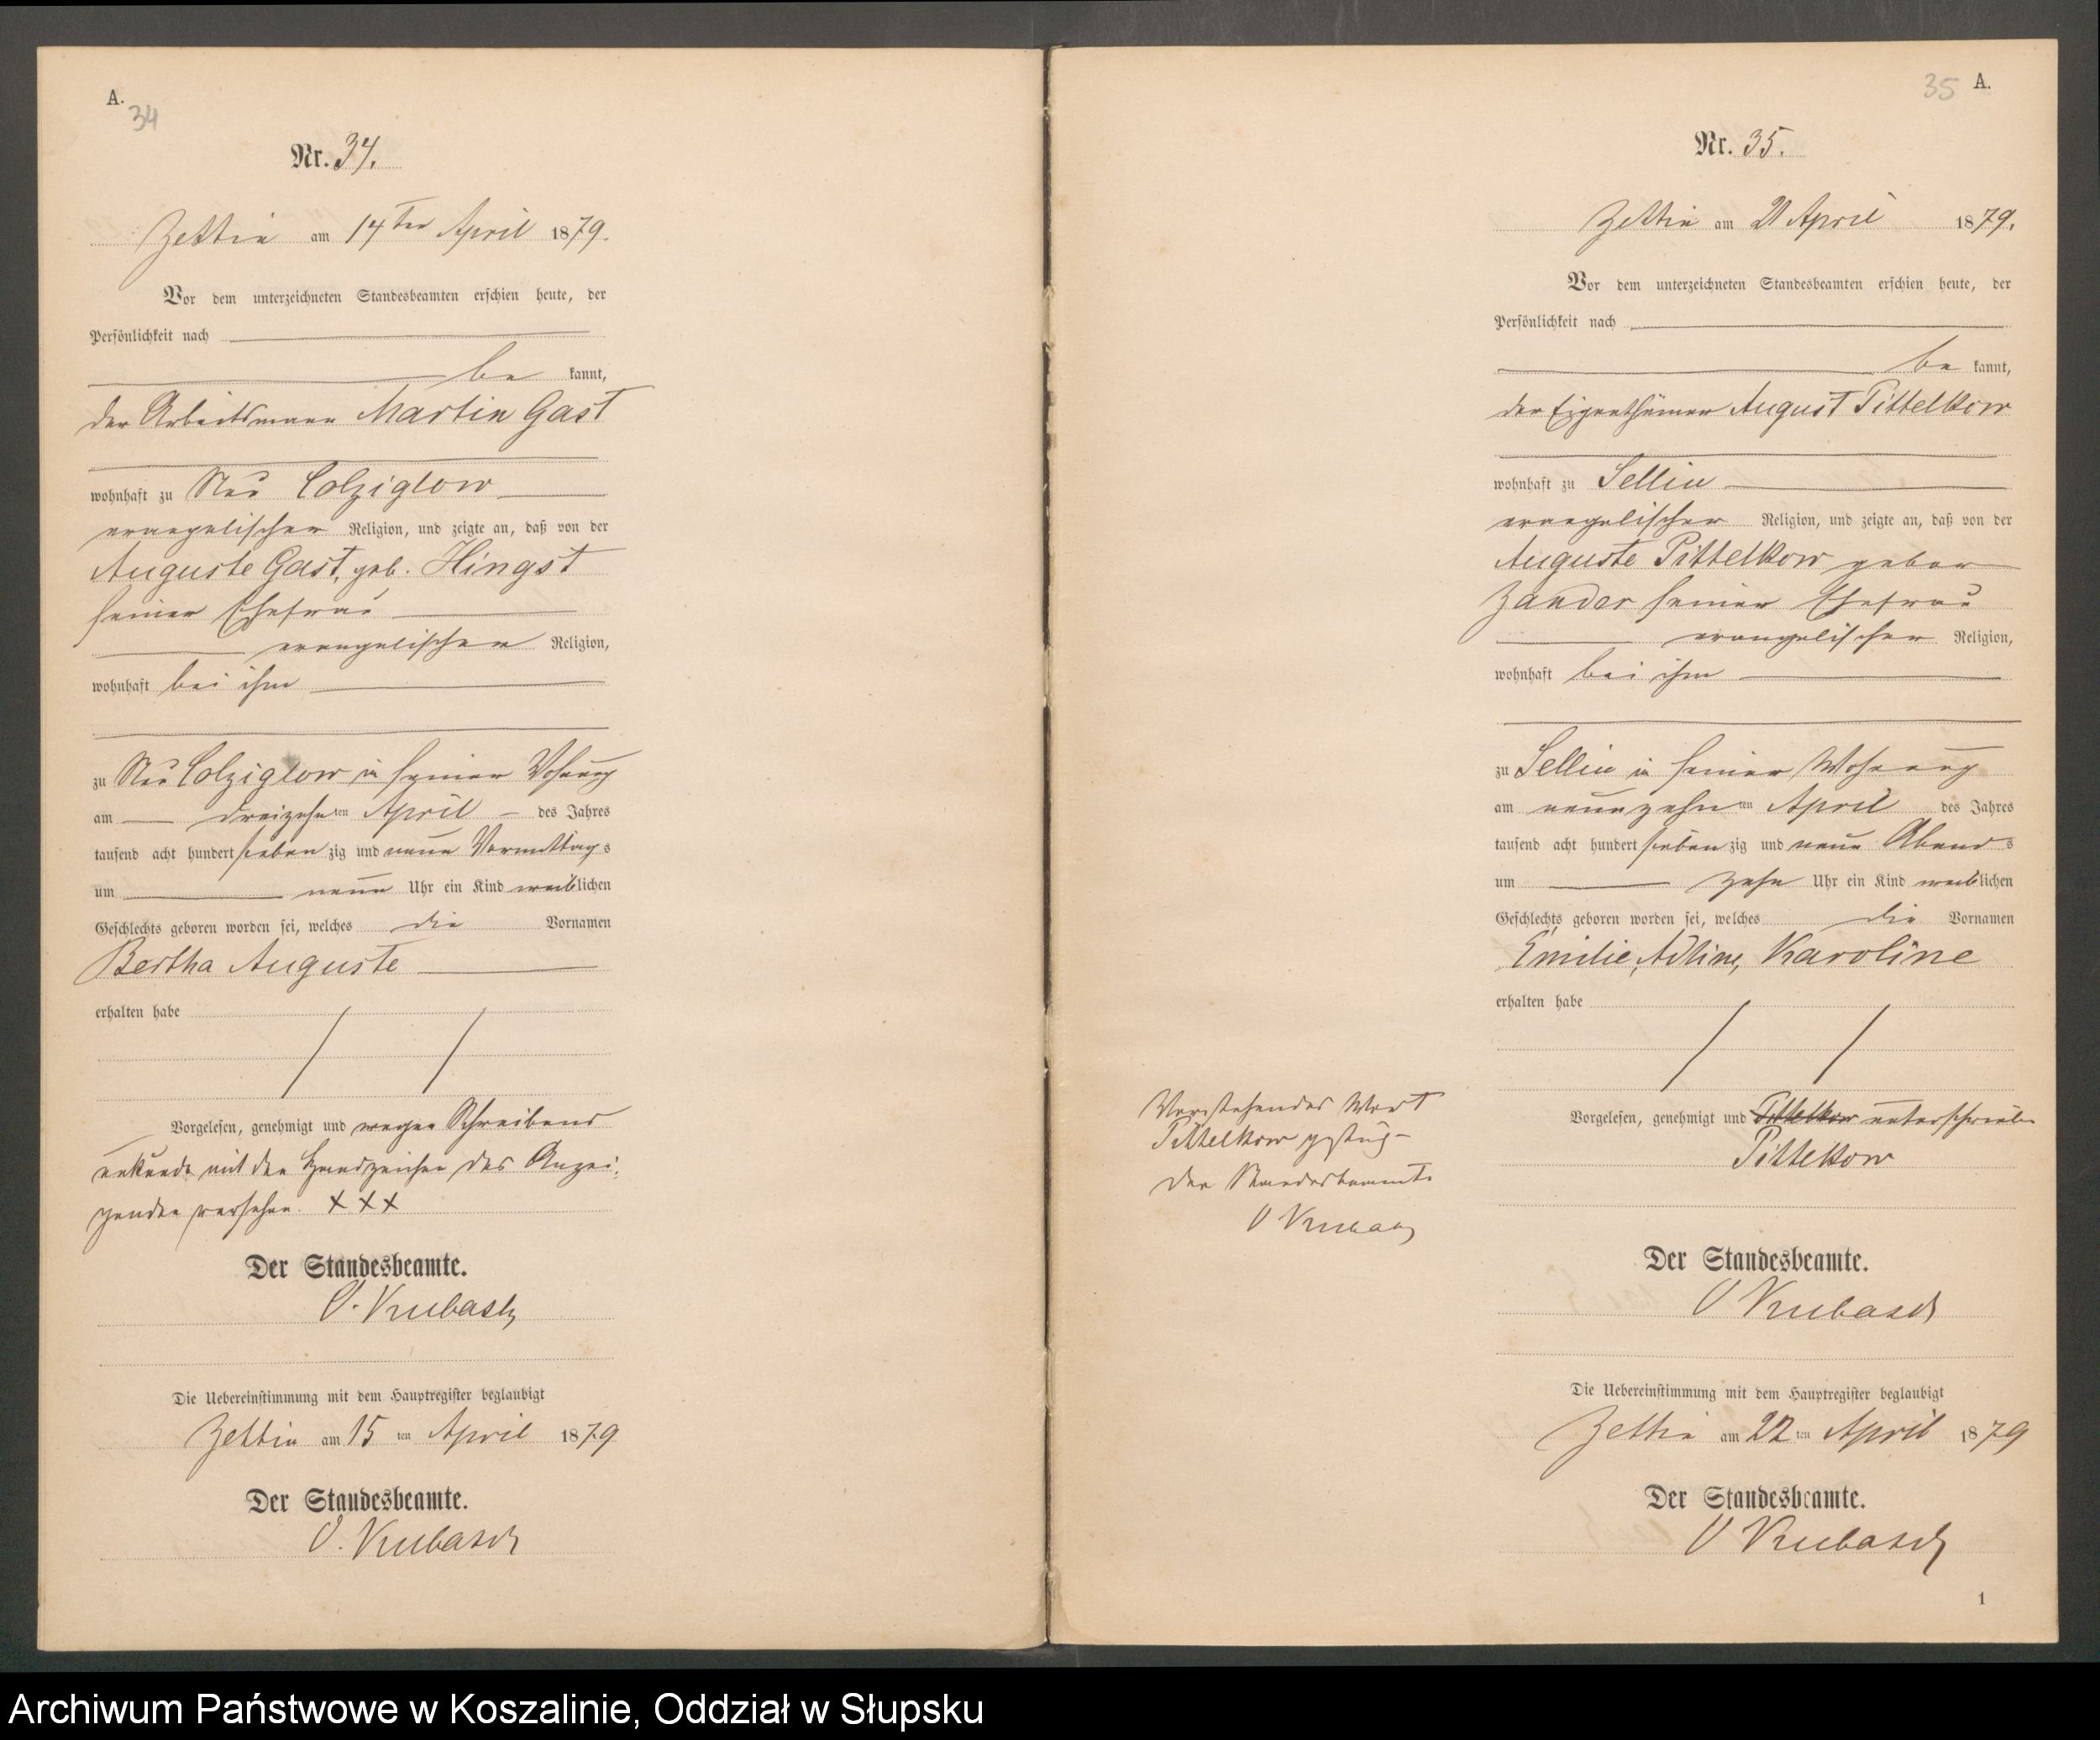 A.
34
Nr. 34.
Zettin am 14ten April 1879.
Vor dem unterzeichneten Standesbeamten erschien heute, der
Persönlichkeit nach
be kannt,
der Arbeitsmann Martin Gast
wohnhaft zu Neu Colziglow
evangelischer Religion, und zeigte an, daß von der
Auguste Gast, geb. Hingst
seiner Ehefrau
evangelischer Religion,
wohnhaft bei ihm
zu Neu Colziglow in seiner Wohnung
am dreizehnten April des Jahres
tausend acht hundert sieben zig und neun Vormittags
um neun Uhr ein Kind weiblichen
Geschlechts geboren worden sei, welches die Vornamen
Bertha Auguste
erhalten habe
Vorgelesen, genehmigt und wegen Schreibens
unkunde mit den Handzeichen des Anzei-
genden versehen. XXX
Der Standesbeamte.
O. Kubasch
Die Uebereinstimmung mit dem Hauptregister beglaubigt
Zettin am 15 ten April 1879
Der Standesbeamte.
O. Kubasch
35 A.
Nr. 35.
Zettin am 21 April 1879.
Vor dem unterzeichneten Standesbeamten erschien heute, der
Persönlichkeit nach
be kannt,
der Eigenthümer August Pittelkow
wohnhaft zu Sellin
evangelischer Religion, und zeigte an, daß von der
Auguste Pittelkow gebor
Zander seiner Ehefrau
evangelischer Religion,
wohnhaft bei ihm
zu Sellin in seiner Wohnung
am neunzehn ten April des Jahres
tausend acht hundert sieben zig und neun Abends
um zehn Uhr ein Kind weiblichen
Geschlechts geboren worden sei, welches die Vornamen
Emilie, Adline, Karoline
erhalten habe
Vorgelesen, genehmigt und Pittelkow unterschrieben
Pittelkow
Vorstehendes Wort
Pittelkow
Der Standesbeamte
O Kubasch
Der Standesbeamte.
O Kubasch
Die Uebereinstimmung mit dem Hauptregister beglaubigt
Zettin am 22 ten April 1879
Der Standesbeamte.
O Kubasch
1
Archiwum Państwowe w Koszalinie, Oddział w Słupsku